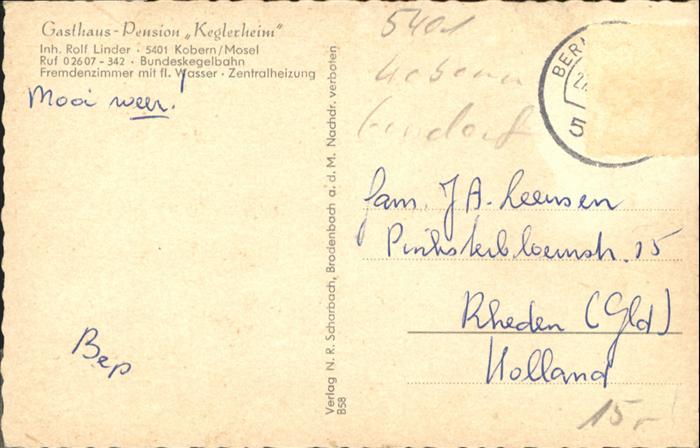 Gasthaus-Pension „Keglerheim"
Inh. Rolf Linder · 5401 Kobern/Mosel
Ruf 02607-342 · Bundeskegelbahn
Fremdenzimmer mit fl. Wasser · Zentralheizung
Mooi weer!
Bep
Verlag N. R. Scharbach, Brodenbach a. d. M. Nachdr. verboten
B58
5401
Kobern
Gondorf
BER
5
fam. J A. Leensen
Pinksterbloemstr. 15
Rheden (Gld)
Holland
15,-